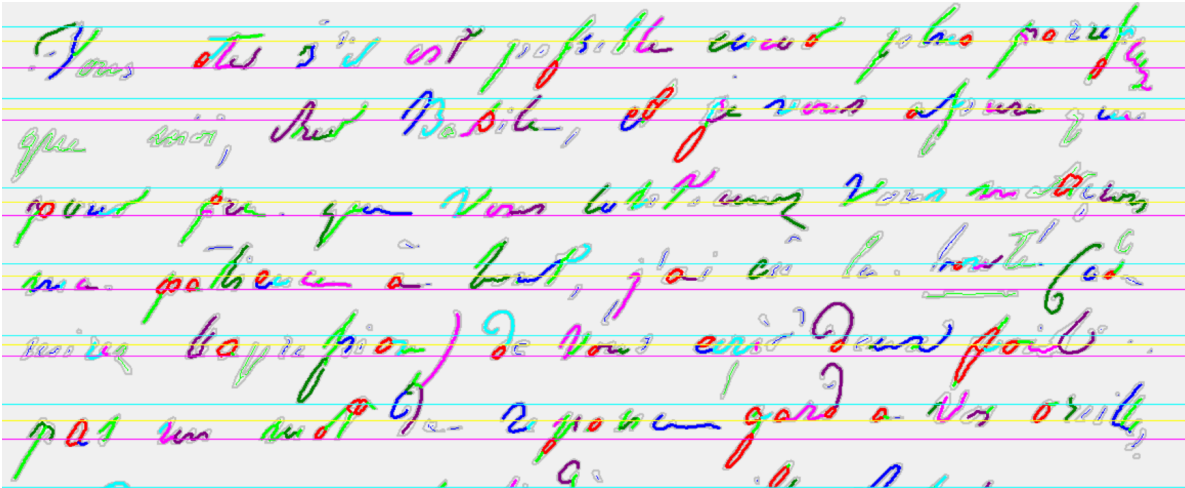 Vous etes s'il est possible encor plus paresseux
que moi, cher Basile, et je vous assure que
pour peu que vous vous
ma patience à bout, j'ai eu la bonté (ad-
mirez l'expression) de vous ecrir deux fois
pas un mot de reponse gard a vos oreilles,